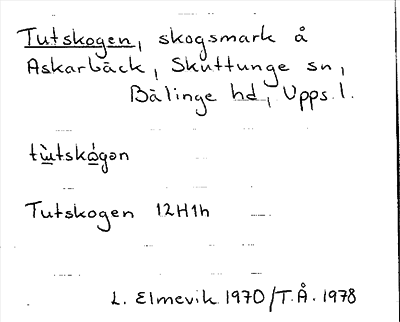 Tutskogen, skogsmark å
Askarbäck, Skuttunge sn,
Bälinge hd, Upps. l.
tùtskógən
Tutskogen 12H1h
L. Elmevik 1970/T.Å. 1978